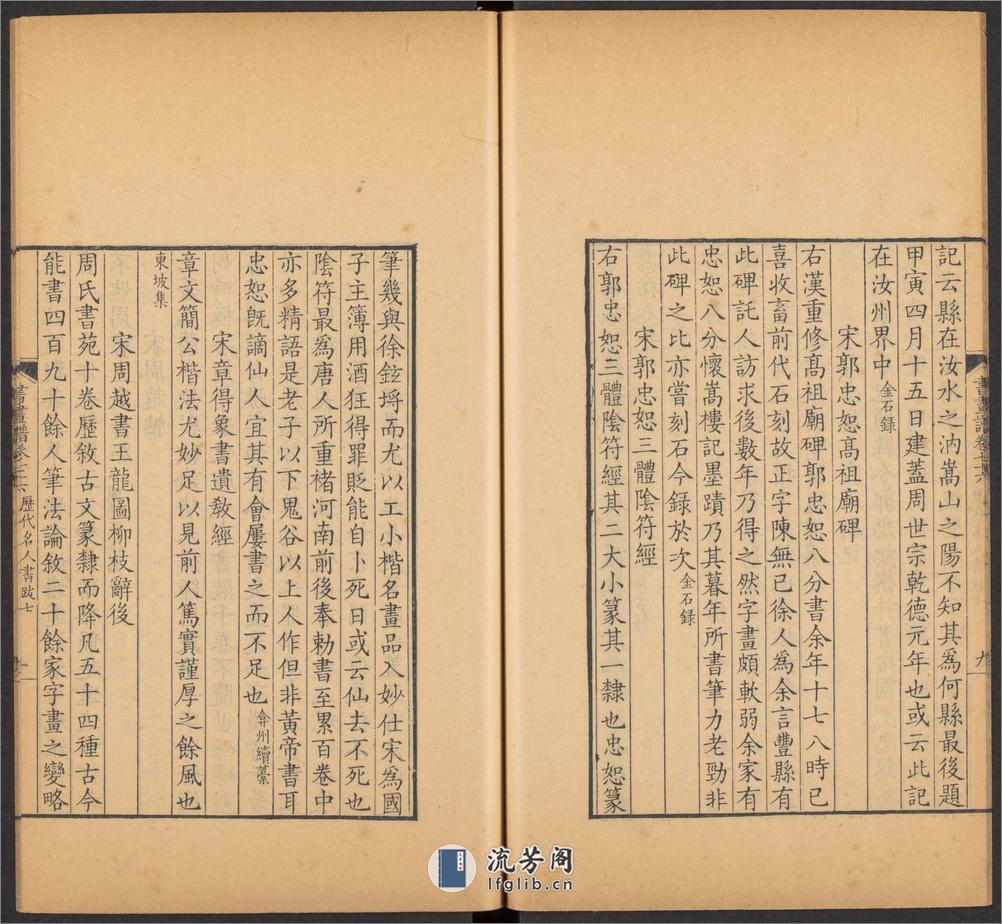 記云縣在汝水之汭嵩山之陽不知其爲何縣最後題
甲寅四月十五日建蓋周世宗乾德元年也或云此記
在汝州界中金石録
宋郭忠恕髙祖廟碑
右漢重修髙祖廟碑郭忠恕八分書余年十七八時已
喜收畜前代石刻故正字陳無已徐人爲余言豐縣有
此碑託人訪求後數年乃得之然字畫頗軟弱余家有
忠恕八分懷嵩樓記墨蹟乃其暮年所書筆力老勁非
此碑之比亦嘗刻石今録於次金石録
宋郭忠恕三體陰符經
右郭忠恕三體陰符經其二大小篆其一隸也忠恕篆
書畫譜卷七十六
九
筆幾與徐鉉埒而尤以工小楷名畫品入妙仕宋為國
子主簿用酒狂得罪貶能自卜死日或云仙去不死也
陰符最爲唐人所重褚河南前後奉勅書至累百卷中
亦多精語是老子以下鬼谷以上人作但非黃帝書耳
忠恕旣謫仙人宜其有會屢書之而不足也弇州續藁
宋章得象書遺敎經
章文簡公楷法尤妙足以見前人篤實謹厚之餘風也
東坡集
宋周越書王龍圖柳枝辭後
周氏書苑十卷歷敘古文篆隸而降凡五十四種古今
能書四百九十餘人筆法論敘二十餘家字畫之變略
歴代名人書跋七
流芳阁
lfglib.cn